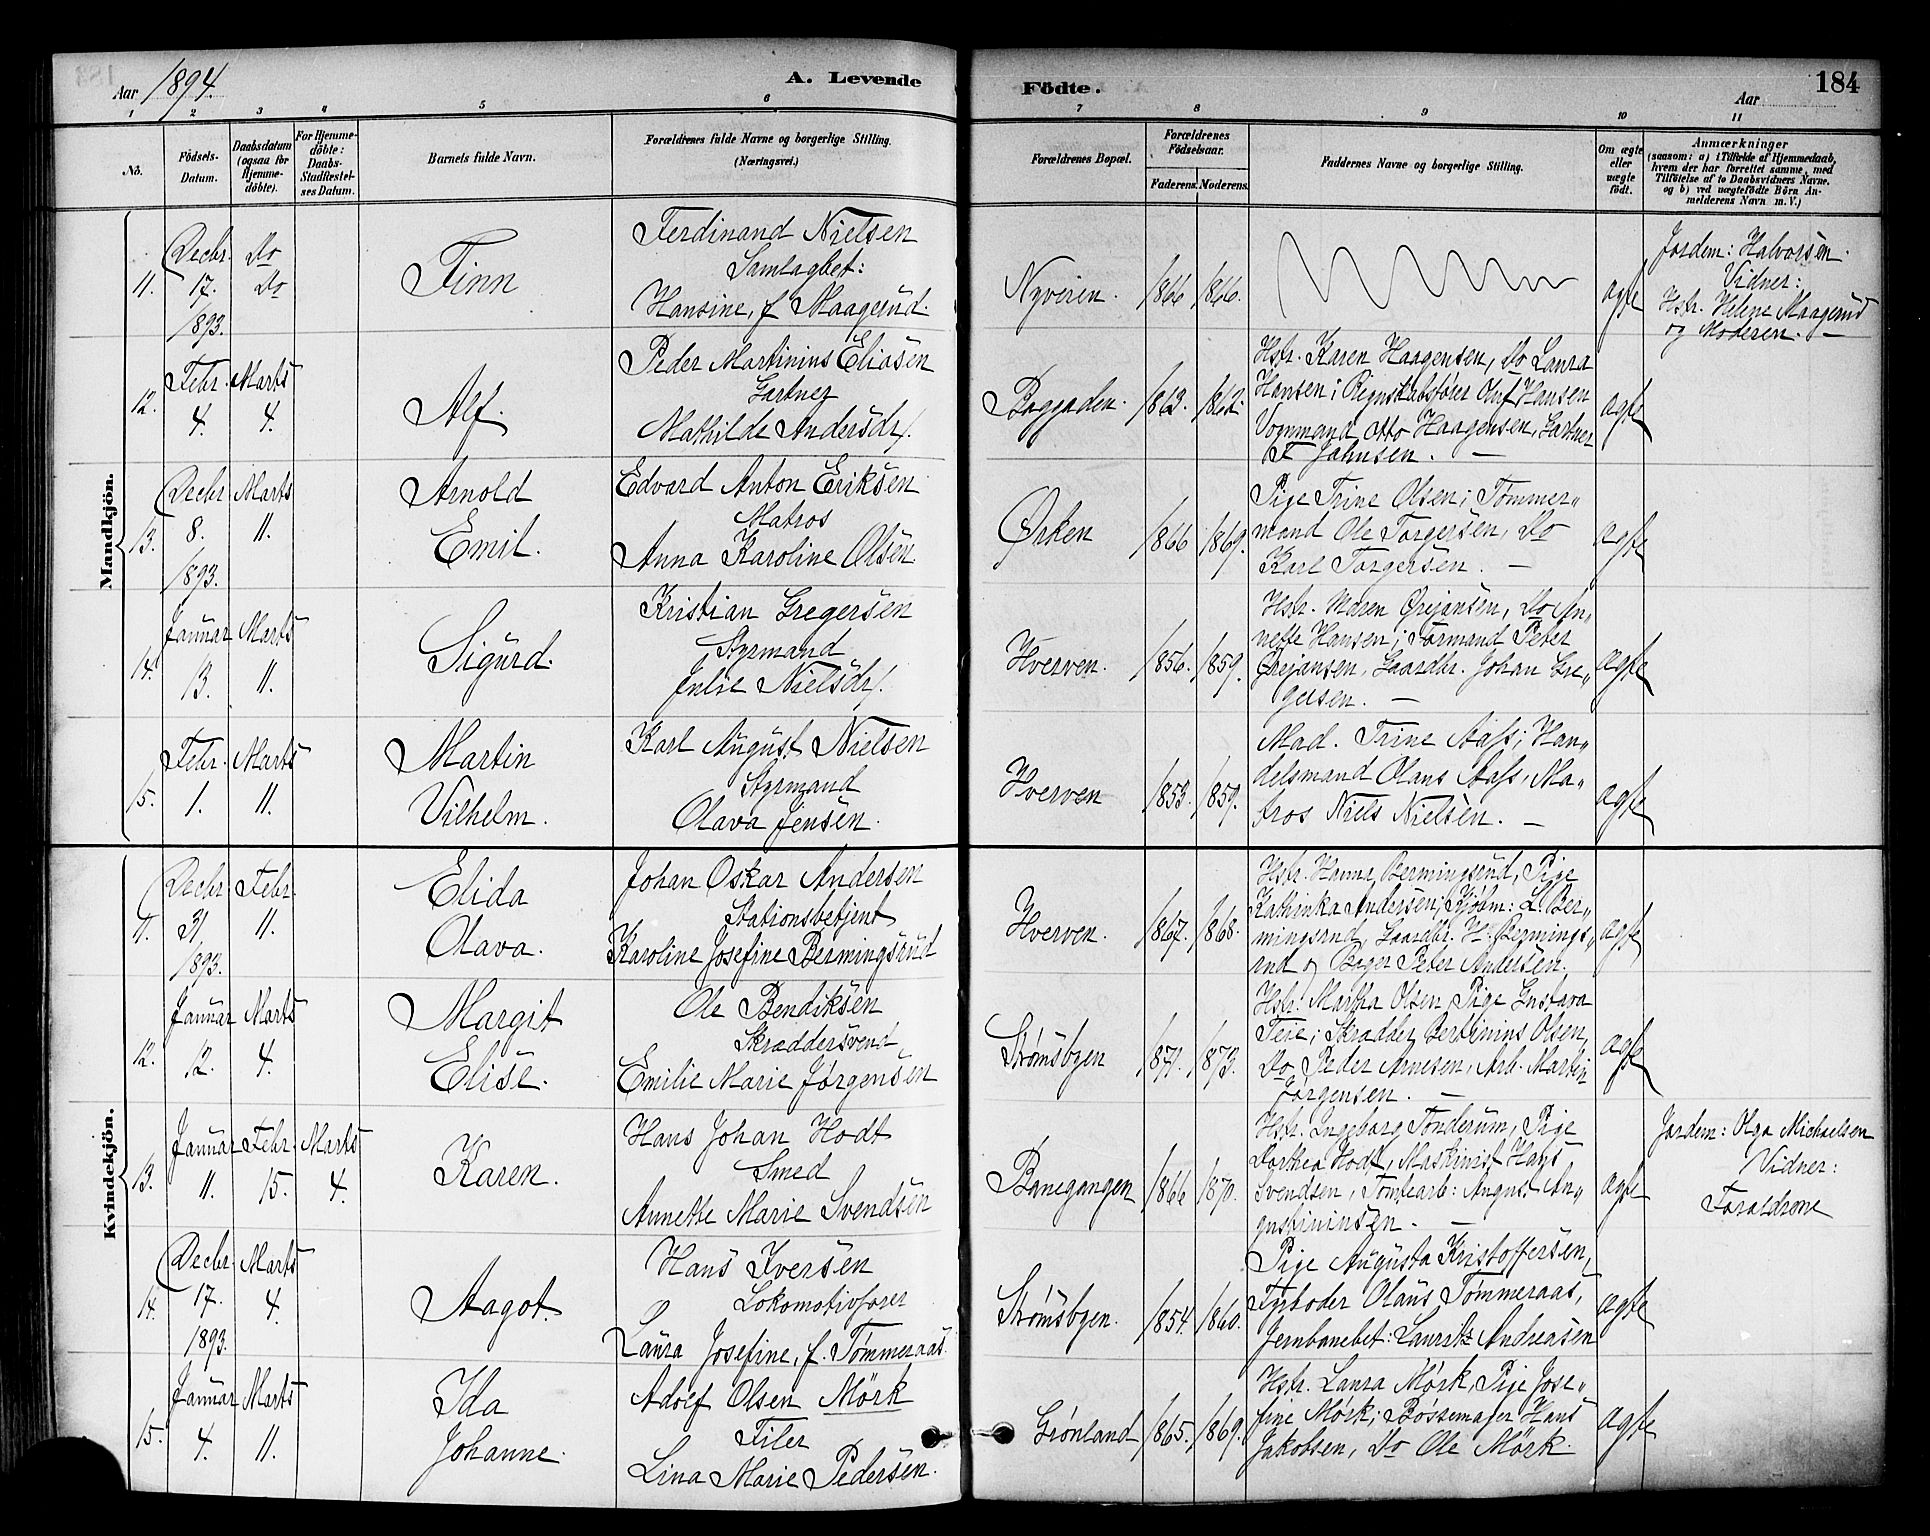 Aar 1894.
A. Levende
Födte.
184
Aar
1 2 3 4 5 6 7 8 9 10 11
No.
Födsels-Datum.
Daabsdatum (ogsaa for Hjemme-döbte).
For Hjemme-döbte: Daabs-Stadfæstel-ses Datum.
Barnets fulde Navn.
Forældrenes fulde Navne og borgerlige Stilling. (Næringsvei.)
Forældrenes Bopæl.
Forældrenes Födselsaar.
Faderens. Moderens.
Faddernes Navne og borgerlige Stilling.
Om ægte eller uægte födt.
Anmærkninger
(saasom: a) i Tilfælde af Hjemmedaab, hvem der har forrettet samme, med Tilföielse af to Daabsvidners Navne, og b) ved uægtefödte Börn Anmelderens Navn m. V.)
Mandkjön.
11. Decbr. 17. 1893.
Do Do
Finn
Ferdinand Nielsen
Samlagbet:
Hansine, f. Maagerud.
Nyveien. 1866 1866.
ægte
Jordem: Halvorsen.
Vidner:
Hstr. Helene Maagerud
og Moderen. —
12. Febr. 4. Marts 4.
Alf.
Peder Martinius Eliasen
Gartner
Mathilde Andersdr.
Baggaden. 1863. 1862.
Hstr. Karen Haagensen, Do Laura
Hansen; Regnskabsfører Oluf Hansen
Vognmand Otto Haagensen, Gartner
F Jahnsen. —
ægte
13. Decbr. 8. 1893. Marts 11.
Arnold
Emil.
Edvard Anton Eriksen
Matros
Anna Karoline Olsen
Ørken 1866 1869.
Pige Trine Olsen; Tømmer„
mand Ole Torgersen, Do
Karl Torgersen. —
ægte
14. Januar 13. Marts 11.
Sigurd.
Kristian Gregersen
Styrmand
Julie Nielsdr.
Hverven. 1856. 1859.
Hstr. Maren Ørejansen, Do An„
nette Hansen; Formand Peter
Ørejansen, Gaardbr. Johan Gre„
gersen. —
ægte
15. Febr. 1. Marts 11.
Martin
Vilhelm.
Karl August Nielsen
Styrmand
Olava Jensen.
Hverven 1853. 1859.
Mad. Trine Aass; Han„
delsmand Olaus Aass, Ma„
tros Niels Nielsen. —
ægte
Kvindekjön.
11. Decbr. 31 1893. Febr. 11.
Elida
Olava.
Johan Oskar Andersen
Stationsbetjent
Karoline Josefine Bermingsrud
Hverven. 1867. 1868.
Hstr. Hanne Bermingsrud, Pige
Kathinka Andersen; Kjøbm: L. Ber„
mingsrud, Gaardbr. H. Bermings„
rud og Bager Peter Andersen.
ægte
12. Januar 12. Marts 4.
Margit
Elise.
Ole Bendiksen
Skræddersvend
Emilie Marie Jørgensen
Strømsbyen 1871. 1873.
Hstr. Martha Olsen, Pige Gustava
Teie; Skrædder Bertinius Olsen,
Do Peder Arnesen, Arb. Martin
Jørgensen. —
ægte
13. Januar 11. Febr. 15. Marts 4.
Karen.
Hans Johan Hodt
Smed
Annette Marie Svendsen
Banegangen 1866 1870.
Hstr. Ingeborg Tonderum, Pige
Dorthea Hodt, Maskinist Hans
Svendsen, Tomtearb: August An„
gustininsen. —
ægte
Jordem: Olga Michaelsen
Vidner:
Forældrene
14. Decbr. 17. 1893. Marts 4.
Aagot.
Hans Iversen
Lokomotivfører
Laura Josefine, f. Tømmeraas.
Strømsbyen. 1854. 1860.
Pige Augusta Kristoffersen,
Fyrbøder Olaus Tømmeraas,
Jernbanebet: Lauritz Andreasen
ægte
15. Januar 4. Marts 11.
Ida
Johanne.
Adolf Olsen Mörk
Filer
Lina Marie Pedersen.
Grønland 1865. 1869.
Hstr. Laura Mørk, Pige Jose„
fine Mørk; Bøssemager Hans
Jakobsen, Do Ole Mørk.
ægte